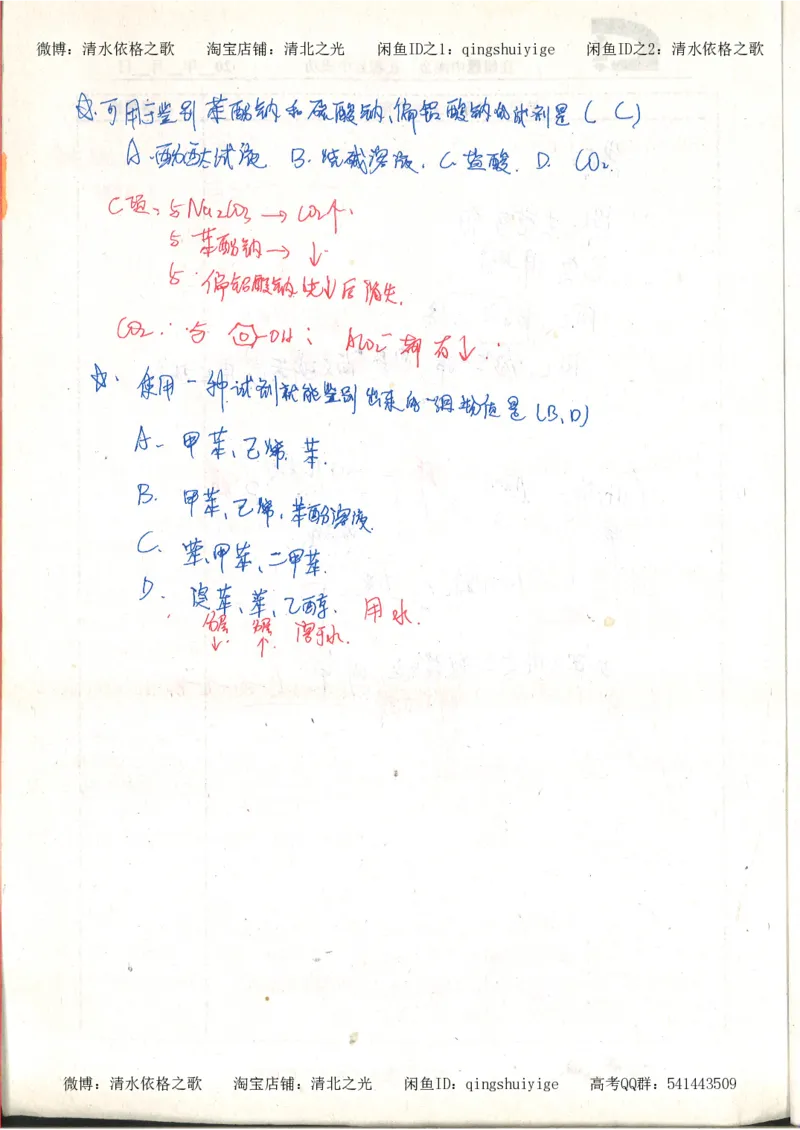 微博：清水依格之歌 淘宝店铺：清北之光 闲鱼ID之1：qingshuiyige 闲鱼ID之2：清水依格之歌
☆.可用于鉴别苯酚钠和硫酸钠、偏铝酸钠的试剂是（C）
A.酚酞试液 B.烧碱溶液. C.盐酸. D. CO2.
C项、与Na2CO3→CO2↑.
与苯酚钠→↓.
与偏铝酸钠先↓后消失.
CO2: 与 -OH; AlO2⁻都有↓.
☆. 使用一种试剂就能鉴别出来的一组物质是(B、D)
A- 甲苯、己烯. 苯.
B. 甲苯、己烯，苯酚溶液
C. 苯、甲苯、二甲苯.
D. 溴苯、苯、乙醇. 用水.
分层 分层 溶于水.
↓. ↑.
微博：清水依格之歌 淘宝店铺：清北之光 闲鱼ID：qingshuiyige 高考QQ群：541443509